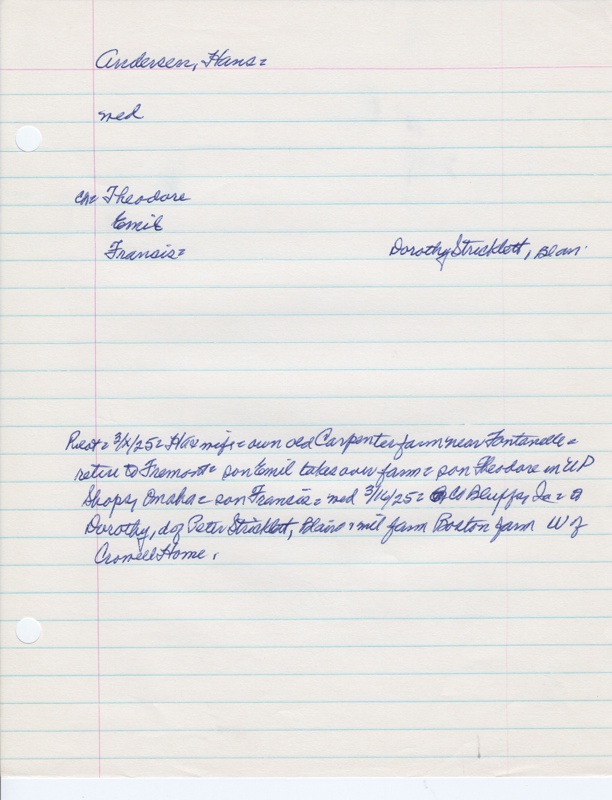 Andersen, Hans=
med
ch= Theodore
Emil
Fransis= Dorothy Stricklett, Blair
3/ /25= H & wife= own old Carpenter farm near Fontanelle=
retire to Fremont= son Emil takes over farm= son Theodore in UP
Shops, Omaha= son Francis= med 3/16/25= Co Bluffs, Ia=
Dorothy, d of Peter Stricklett, Blair= wil farm Boston farm W of
Crowell Home.